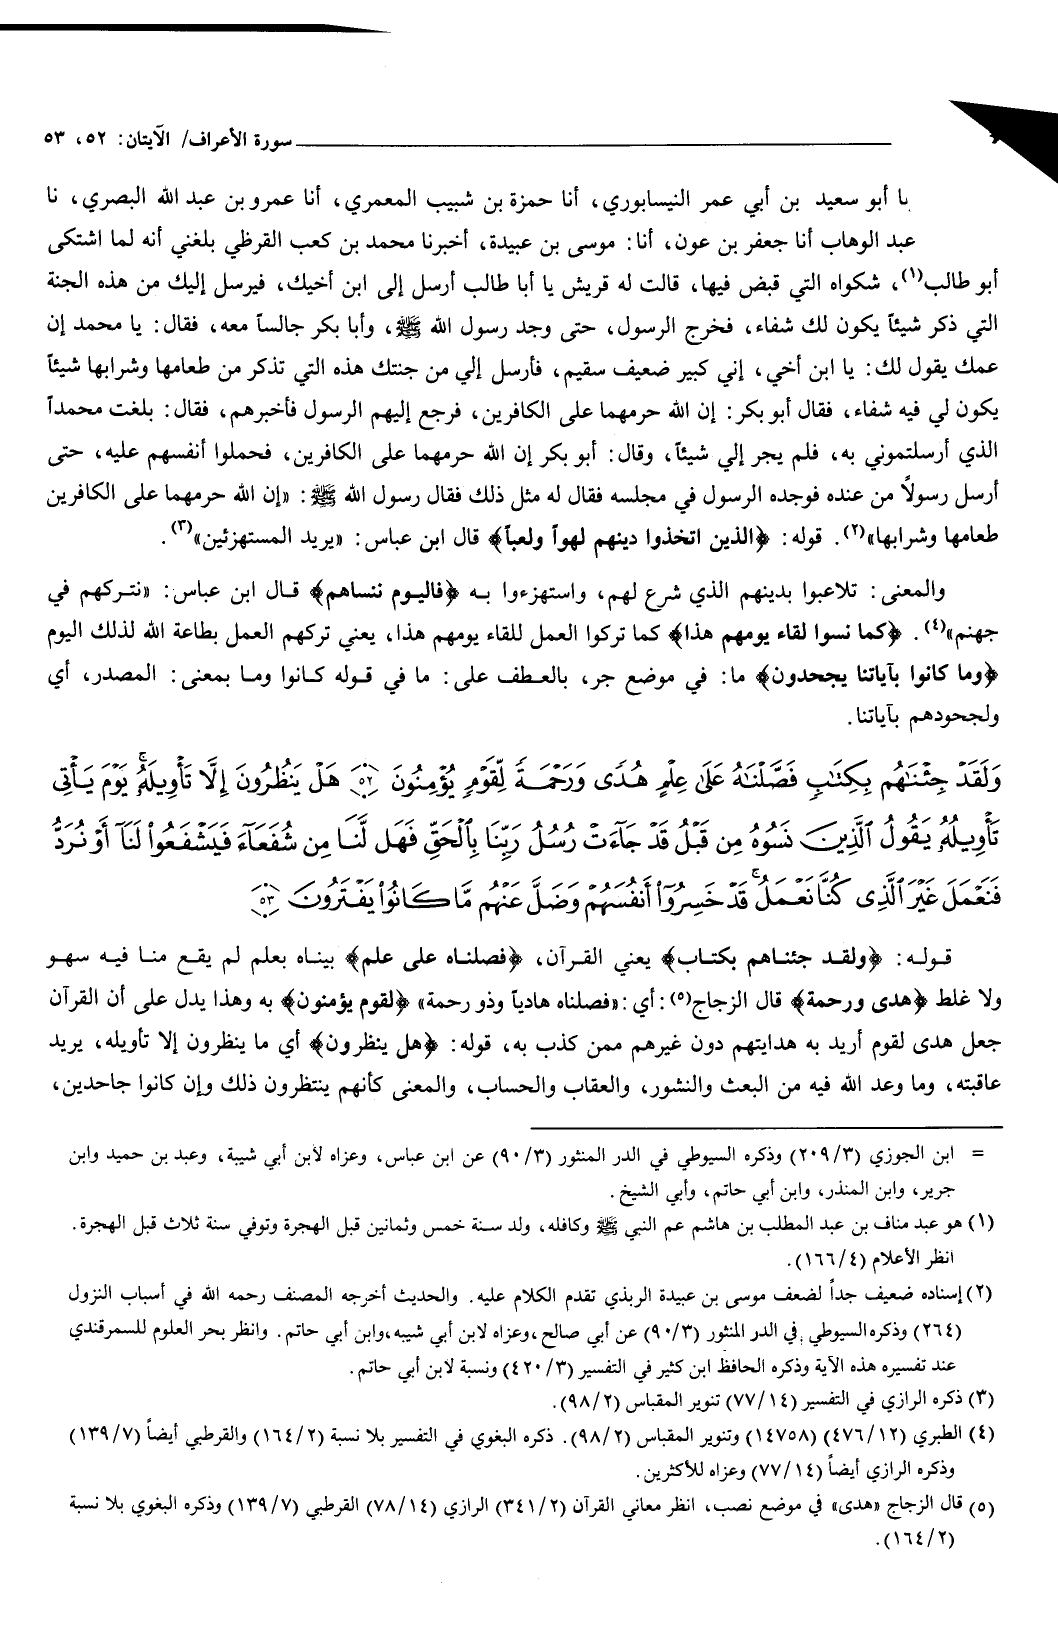 سورة الأعراف/ الآيتان: ٥٢، ٥٣
أبو سعيد بن أبي عمر النيسابوري، أنا حمزة بن شبيب المعمري، أنا عمرو بن عبد الله البصري، نا
عبد الوهاب أنا جعفر بن عون، أنا: موسى بن عبيدة، أخبرنا محمد بن كعب القرظي بلغني أنه لما اشتكى
أبو طالب(١)، شكواه التي قبض فيها، قالت له قريش يا أبا طالب أرسل إلى ابن أخيك، فيرسل إليك من هذه الجنة
التي ذكر شيئاً يكون لك شفاء، فخرج الرسول، حتى وجد رسول الله ﷺ، وأبا بكر جالساً معه، فقال: يا محمد إن
عمك يقول لك: يا ابن أخي، إني كبير ضعيف سقيم، فأرسل إلي من جنتك هذه التي تذكر من طعامها وشرابها شيئاً
يكون لي فيه شفاء، فقال أبو بكر: إن الله حرمهما على الكافرين، فرجع إليهم الرسول فأخبرهم، فقال: بلغت محمداً
الذي أرسلتموني به، فلم يجر إلي شيئاً، وقال: أبو بكر إن الله حرمهما على الكافرين، فحملوا أنفسهم عليه، حتى
أرسل رسولاً من عنده فوجده الرسول في مجلسه فقال له مثل ذلك فقال رسول الله ﷺ: «إن الله حرمهما على الكافرين
طعامها وشرابها»(٢). قوله: ﴿الذين اتخذوا دينهم لهواً ولعباً﴾ قال ابن عباس: «يريد المستهزئين»(٣).
والمعنى: تلاعبوا بدينهم الذي شرع لهم، واستهزءوا به ﴿فاليوم ننساهم﴾ قال ابن عباس: «نتركهم في
جهنم»(٤). ﴿كما نسوا لقاء يومهم هذا﴾ كما تركوا العمل للقاء يومهم هذا، يعني تركهم العمل بطاعة الله لذلك اليوم
﴿وما كانوا بآياتنا يجحدون﴾ ما: في موضع جر، بالعطف على: ما في قوله كانوا وما بمعنى: المصدر، أي
ولجحودهم بآياتنا.
وَلَقَدْ جِئْنَٰهُم بِكِتَٰبٍ فَصَّلْنَٰهُ عَلَىٰ عِلْمٍ هُدًى وَرَحْمَةً لِّقَوْمٍ يُؤْمِنُونَ ۝٥٢ هَلْ يَنظُرُونَ إِلَّا تَأْوِيلَهُۥ ۚ يَوْمَ يَأْتِى
تَأْوِيلُهُۥ يَقُولُ ٱلَّذِينَ نَسُوهُ مِن قَبْلُ قَدْ جَآءَتْ رُسُلُ رَبِّنَا بِٱلْحَقِّ فَهَل لَّنَا مِن شُفَعَآءَ فَيَشْفَعُوا۟ لَنَآ أَوْ نُرَدُّ
فَنَعْمَلَ غَيْرَ ٱلَّذِى كُنَّا نَعْمَلُ ۚ قَدْ خَسِرُوٓا۟ أَنفُسَهُمْ وَضَلَّ عَنْهُم مَّا كَانُوا۟ يَفْتَرُونَ ۝٥٣
قوله: ﴿ولقد جئناهم بكتاب﴾ يعني القرآن، ﴿فصلناه على علم﴾ بيناه بعلم لم يقع منا فيه سهو
ولا غلط ﴿هدى ورحمة﴾ قال الزجاج(٥): أي: «فصلناه هادياً وذو رحمة» ﴿لقوم يؤمنون﴾ به وهذا يدل على أن القرآن
جعل هدى لقوم أريد به هدايتهم دون غيرهم ممن كذب به، قوله: ﴿هل ينظرون﴾ أي ما ينظرون إلا تأويله، يريد
عاقبته، وما وعد الله فيه من البعث والنشور، والعقاب والحساب، والمعنى كأنهم ينتظرون ذلك وإن كانوا جاحدين،
= ابن الجوزي (٢٠٩/٣) وذكره السيوطي في الدر المنثور (٩٠/٣) عن ابن عباس، وعزاه لأبن أبي شيبة، وعبد بن حميد وابن
جرير، وابن المنذر، وابن أبي حاتم، وأبي الشيخ.
(١) هو عبد مناف بن عبد المطلب بن هاشم عم النبي ﷺ وكافله، ولد سنة خمس وثمانين قبل الهجرة وتوفي سنة ثلاث قبل الهجرة.
انظر الأعلام (١٦٦/٤).
(٢) إسناده ضعيف جداً لضعف موسى بن عبيدة الربذي تقدم الكلام عليه. والحديث أخرجه المصنف رحمه الله في أسباب النزول
(٢٦٤) وذكره السيوطي في الدر المنثور (٩٠/٣) عن أبي صالح، وعزاه لابن أبي شيبه، وابن أبي حاتم. وانظر بحر العلوم للسمرقندي
عند تفسيره هذه الآية وذكره الحافظ ابن كثير في التفسير (٤٢٠/٣) ونسبة لابن أبي حاتم.
(٣) ذكره الرازي في التفسير (٧٧/١٤) تنوير المقباس (٩٨/٢).
(٤) الطبري (٤٧٦/١٢) (١٤٧٥٨) وتنوير المقباس (٩٨/٢). ذكره البغوي في التفسير بلا نسبة (١٦٤/٢) والقرطبي أيضاً (١٣٩/٧)
وذكره الرازي أيضاً (٧٧/١٤) وعزاه للأكثرين.
(٥) قال الزجاج «هدى» في موضع نصب، انظر معاني القرآن (٣٤١/٢) الرازي (٧٨/١٤) القرطبي (١٣٩/٧) وذكره البغوي بلا نسبة
(١٦٤/٢).